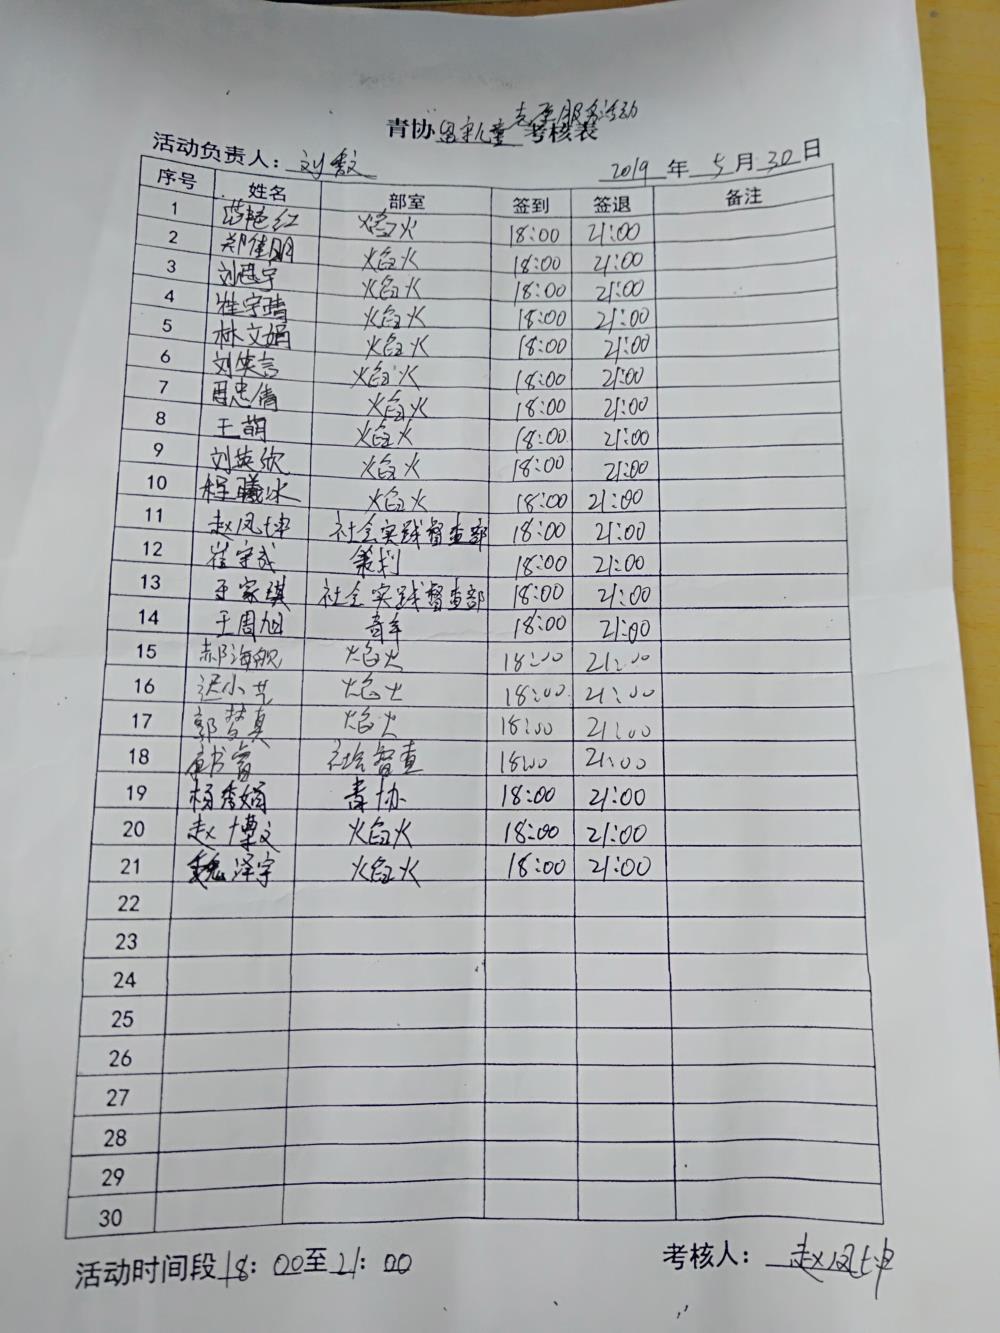 青协留守儿童志愿服务活动考核表
活动负责人：刘敏 2019年5月30日
序号 姓名 部室 签到 签退 备注
1 艳红 焰火 18:00 21:00
2 郑佳明 焰火 18:00 21:00
3 刘思宇 焰火 18:00 21:00
4 崔宇晴 焰火 18:00 21:00
5 林文娟 焰火 18:00 21:00
6 刘笑言 焰火 18:00 21:00
7 周忠倩 焰火 18:00 21:00
8 王萌 焰火 18:00 21:00
9 刘英欣 焰火 18:00 21:00
10 程曦冰 焰火 18:00 21:00
11 赵凤坤 社会实践督查部 18:00 21:00
12 崔守成 策划 18:00 21:00
13 王家琪 社会实践督查部 18:00 21:00
14 王周旭 青年 18:00 21:00
15 郝海舰 焰火 18:00 21:00
16 迟小艺 焰火 18:00 21:00
17 郭梦真 焰火 18:00 21:00
18 社会督查 18:00 21:00
19 杨秀娟 青协 18:00 21:00
20 赵博文 焰火 18:00 21:00
21 魏泽宇 焰火 18:00 21:00
22
23
24
25
26
27
28
29
30
活动时间段18：00至21：00 考核人：赵凤坤